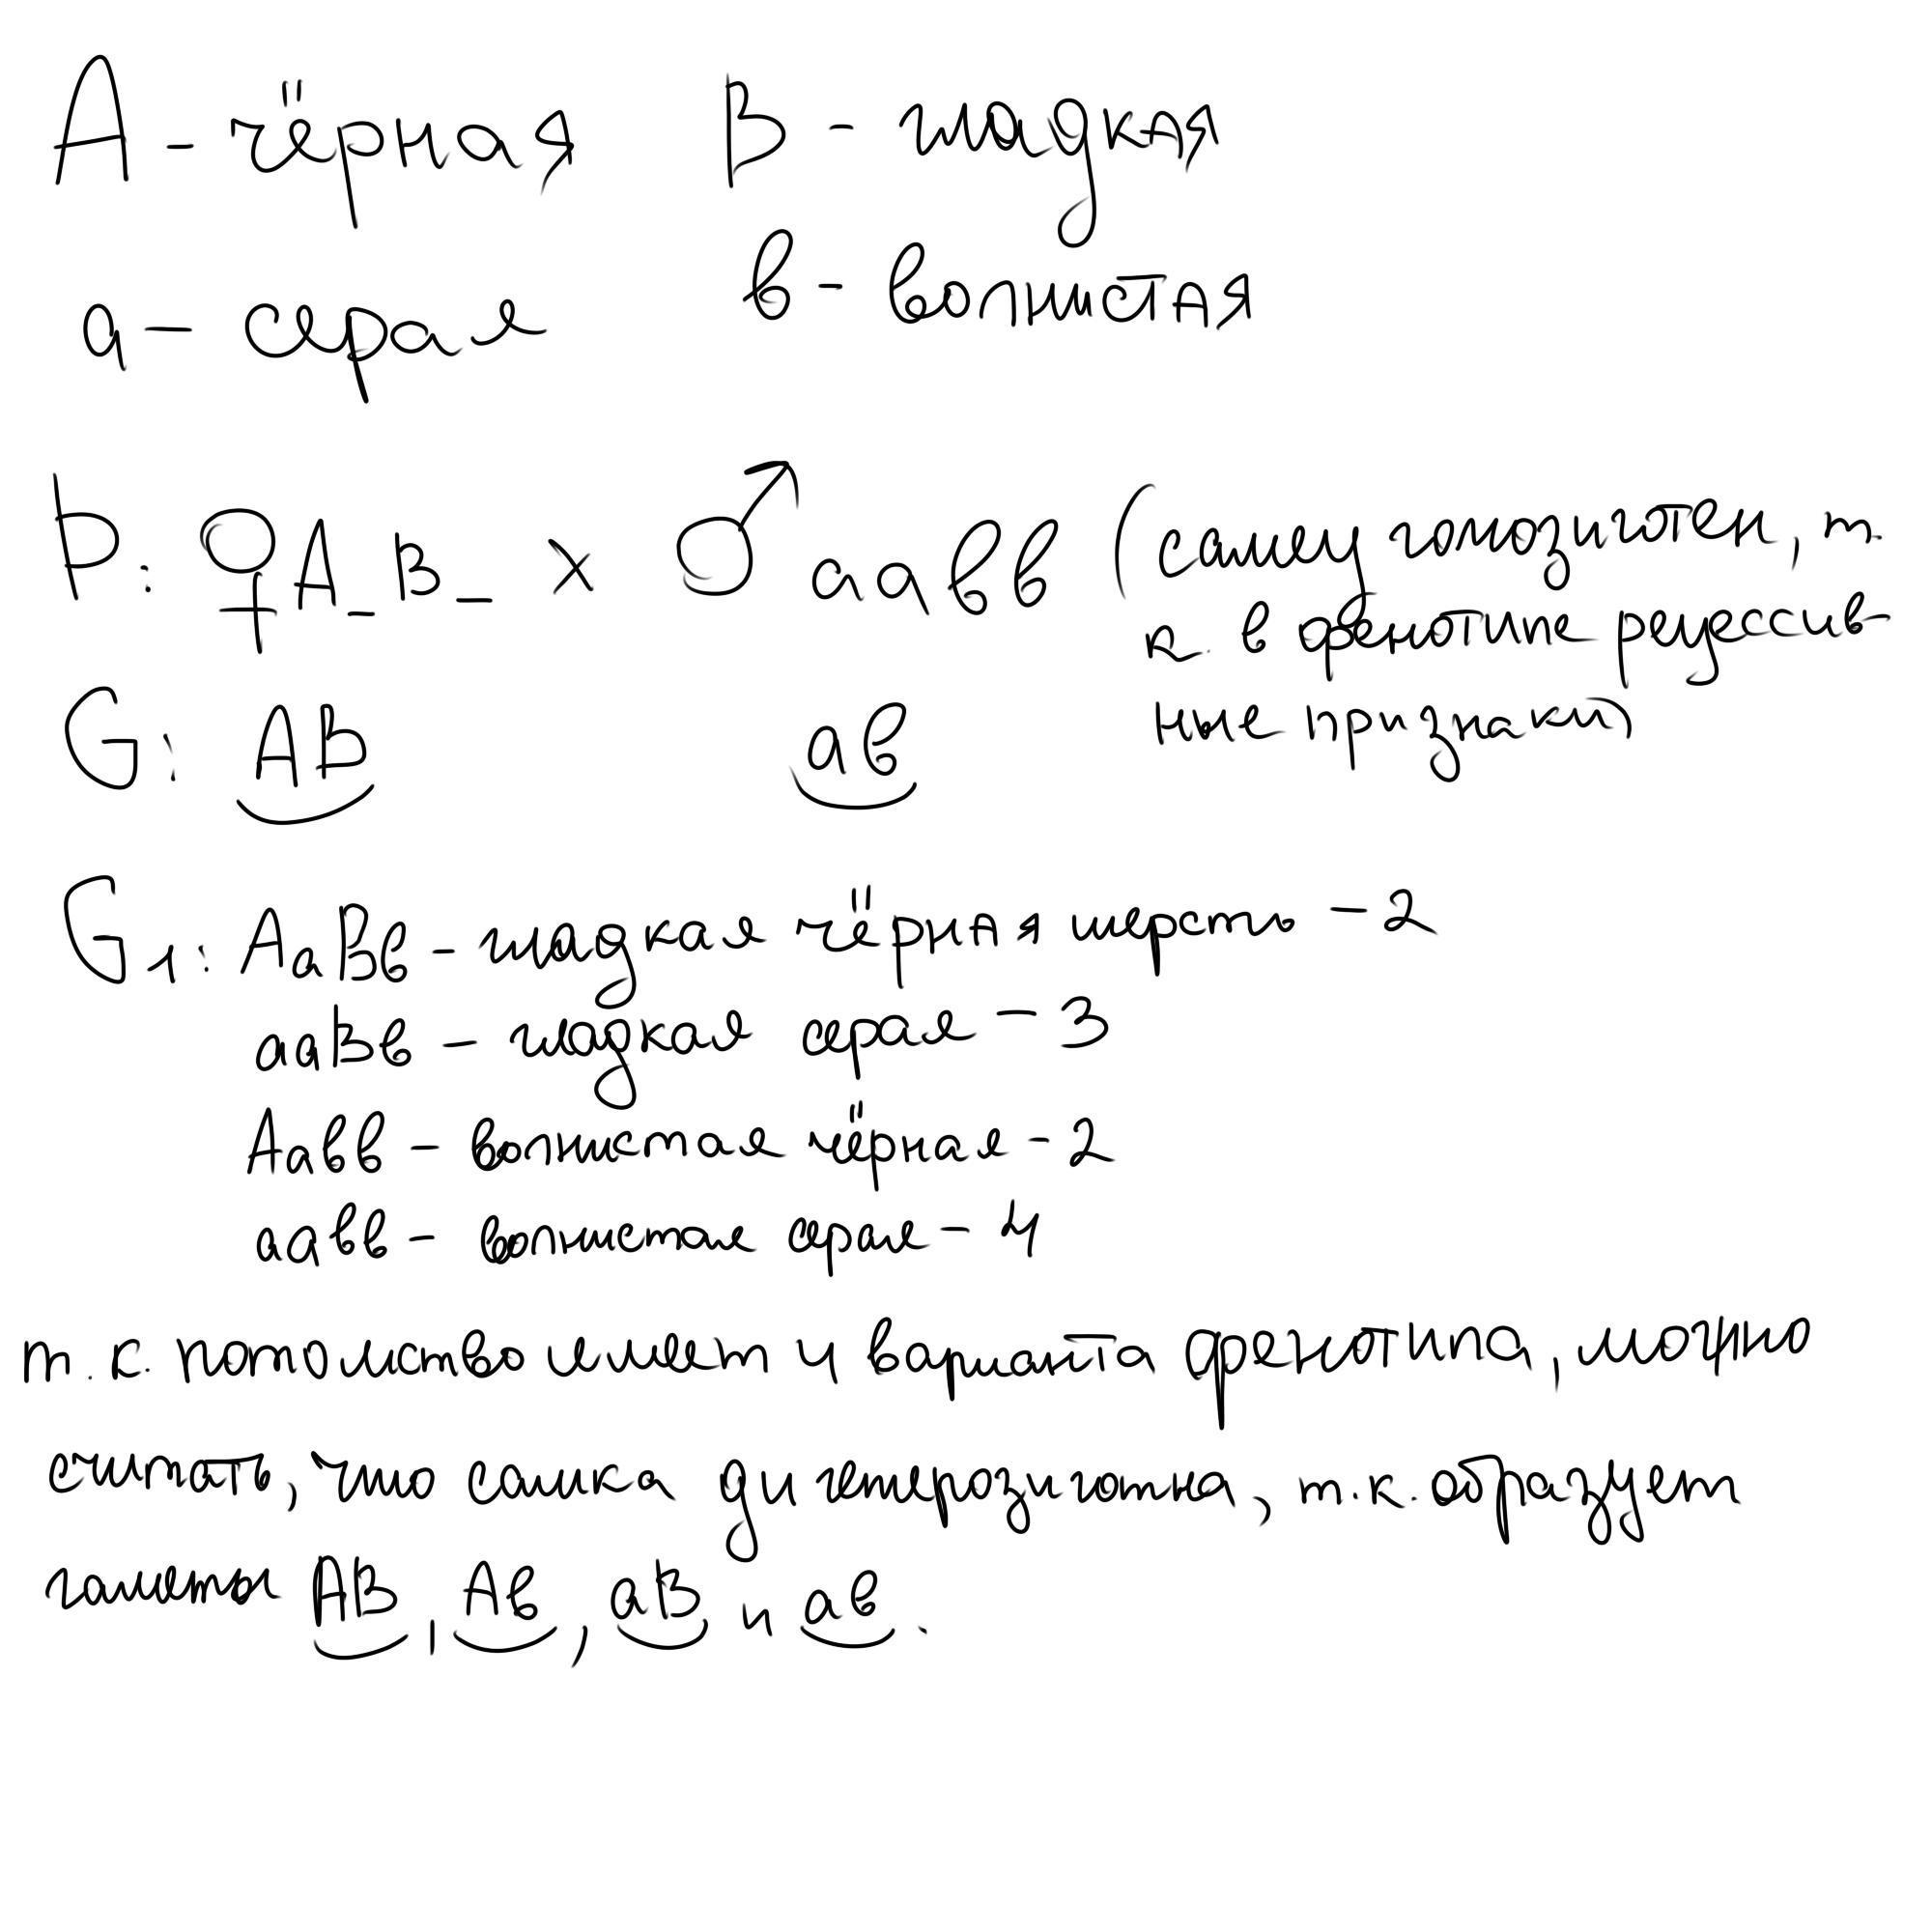 A – чёрная B – гладкая
a – серая в – волнистая
P: ♀A_B_ × ♂ aaвв (самец гомозиготен, т.
к. в фенотипе рецессив-
ные признаки)
G: AB aв
G1: AaBв – гладкая чёрная шерсть – 2
aaBв – гладкая серая – 3
Aaвв – волнистая чёрная – 2
aaвв – волнистая серая – 4
т.к. потомство имеет 4 варианта фенотипа, можно
считать, что самка дигетерозиготна, т.к. образует
гаметы AB, Aв, aB и aв.